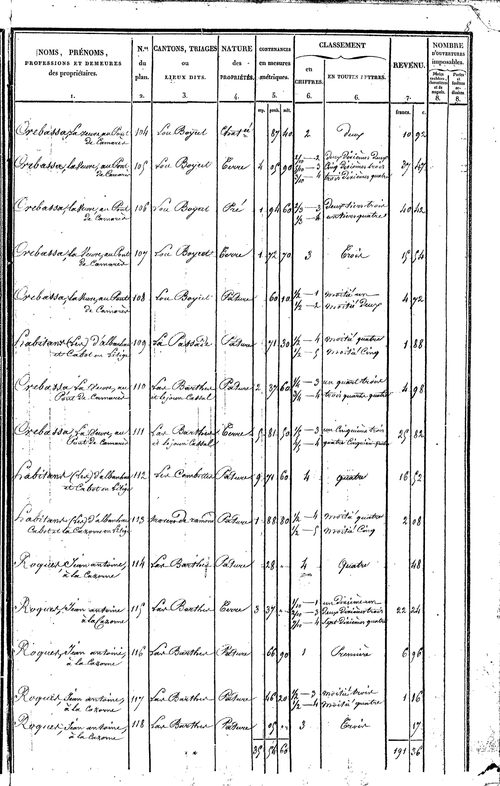 NOMS, PRÉNOMS, PROFESSIONS ET DEMEURES des propriétaires. | N.os du plan. | CANTONS, TRIAGES ou LIEUX DITS. | NATURE des PROPRIÉTÉS. | CONTENANCES en mesures métriques. | CLASSEMENT | REVENU. | NOMBRE D'OUVERTURES imposables.
en CHIFFRES. | EN TOUTES LETTRES.
1. | 2. | 3. | 4. | 5. | 6. | 6. | 7. | 8. | 8.
francs. | c.
Orebassa, la veuve, au Pont de Camarès | 104 | Lou Boyrel | 87 40 | 2 | Deux | 10 92
Orebassa, la veuve, au Pont de Camarès | 105 | Lou Boyrel | Terre | 4 05 90 | 2/10 — 2 5/10 — 3 3/10 — 4 | Deux dixièmes deux Cinq dixièmes trois trois dixièmes quatre | 37 47
Orebassa, la veuve, au Pont de Camarès | 106 | Lou Boyrel | Pré | 1 94 60 | 2/3 — 3 1/3 — 4 | Deux tiers trois un tiers quatre | 40 42
Orebassa, la Veuve, au Pont de Camarès | 107 | Lou Boyrel | Terre | 1 72 70 | 3 | Trois | 15 54
Orebassa, la Veuve, au Pont de Camarès | 108 | Lou Boyrel | Pâture | 60 10 | 1/2 — 1 1/2 — 2 | moitié un moitié Deux | 4 72
habitans (Les) d'albanhan et Cabot ou Liège | 109 | La Passade | Pâture | 71 30 | 1/2 — 4 1/2 — 5 | moitié quatre moitié Cinq | 1 88
Orebassa La Veuve, au Pont de Camarès | 110 | Las Barthes et lejouncassal | Pâture | 2 37 60 | 1/4 — 3 3/4 — 4 | un quart trois trois quarts quatre | 4 98
Orebassa La Veuve, au Pont de Camarès | 111 | Las Barthes et lejouncassal | Terre | 5 81 50 | 1/5 — 3 4/5 — 4 | un Cinquième trois quatre Cinquièmes quatre | 25 82
habitans (Les) d'albanhan et Cabot ou Liège | 112 | Les Combettes | Pâture | 9 71 60 | 4 | quatre | 16 52
habitans (Les) d'albanhan Cabot et la Cazorne ou Liège | 113 | Pâture | 1 88 80 | 1/2 — 4 1/2 — 5 | moitié quatre moitié Cinq | 2 08
Roques, Jean antoine, à la Cazorne | 114 | Las Barthes | Pâture | 28 | 4 | Quatre | 48
Roques, Jean antoine à la Cazorne | 115 | Las Barthes | Terre | 3 37 | 1/10 — 1 2/10 — 3 7/10 — 4 | un dixième un Deux dixièmes trois Sept dixièmes quatre | 22 24
Roques, Jean antoine, à la Cazorne | 116 | Las Barthes | Pâture | 66 90 | 1 | Première | 6 96
Roques, Jean antoine, à la Cazorne | 117 | Las Barthes | Pâture | 46 20 | 1/2 — 3 1/2 — 4 | moitié trois moitié quatre | 1 16
Roques, Jean antoine, à la Cazorne | 118 | Las Barthes | Pâture | 05 | 3 | Trois | 17
35 56 60 | 191 36